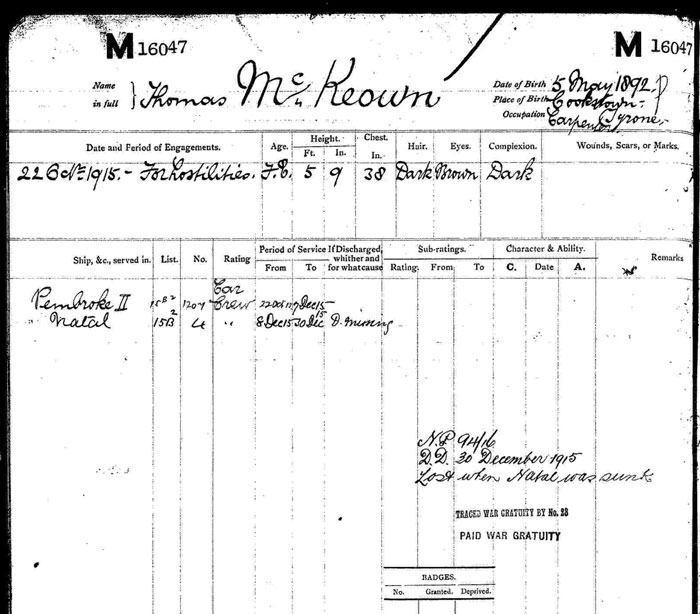 M 16047
M 16047
Name in full } Thomas McKeown
Date of Birth 5 May 1892
Place of Birth Cookstown
Tyrone
Occupation Carpenter
Date and Period of Engagements. Age. Height. Ft. In. Chest. In. Hair. Eyes. Complexion. Wounds, Scars, or Marks.
22 Octr 1915 - For hostilities. F.C. 5 9 38 Dark Brown Dark
Ship, &c., served in. List. No. Rating Period of Service From To If Discharged, whither and for what cause Sub-ratings. Rating. From To Character & Ability. C. Date A. Remarks
Car
Pembroke II 15B2 1207 Crew 22 Oct 15 7 Dec 15
Natal 15B2 4 " 8 Dec 15 30 Dec 15 D. missing
N.P. 94/16
D.D. 30 December 1915
Lost when Natal was sunk
TRACED WAR GRATUITY BY No. 28
PAID WAR GRATUITY
BADGES.
No. Granted. Deprived.